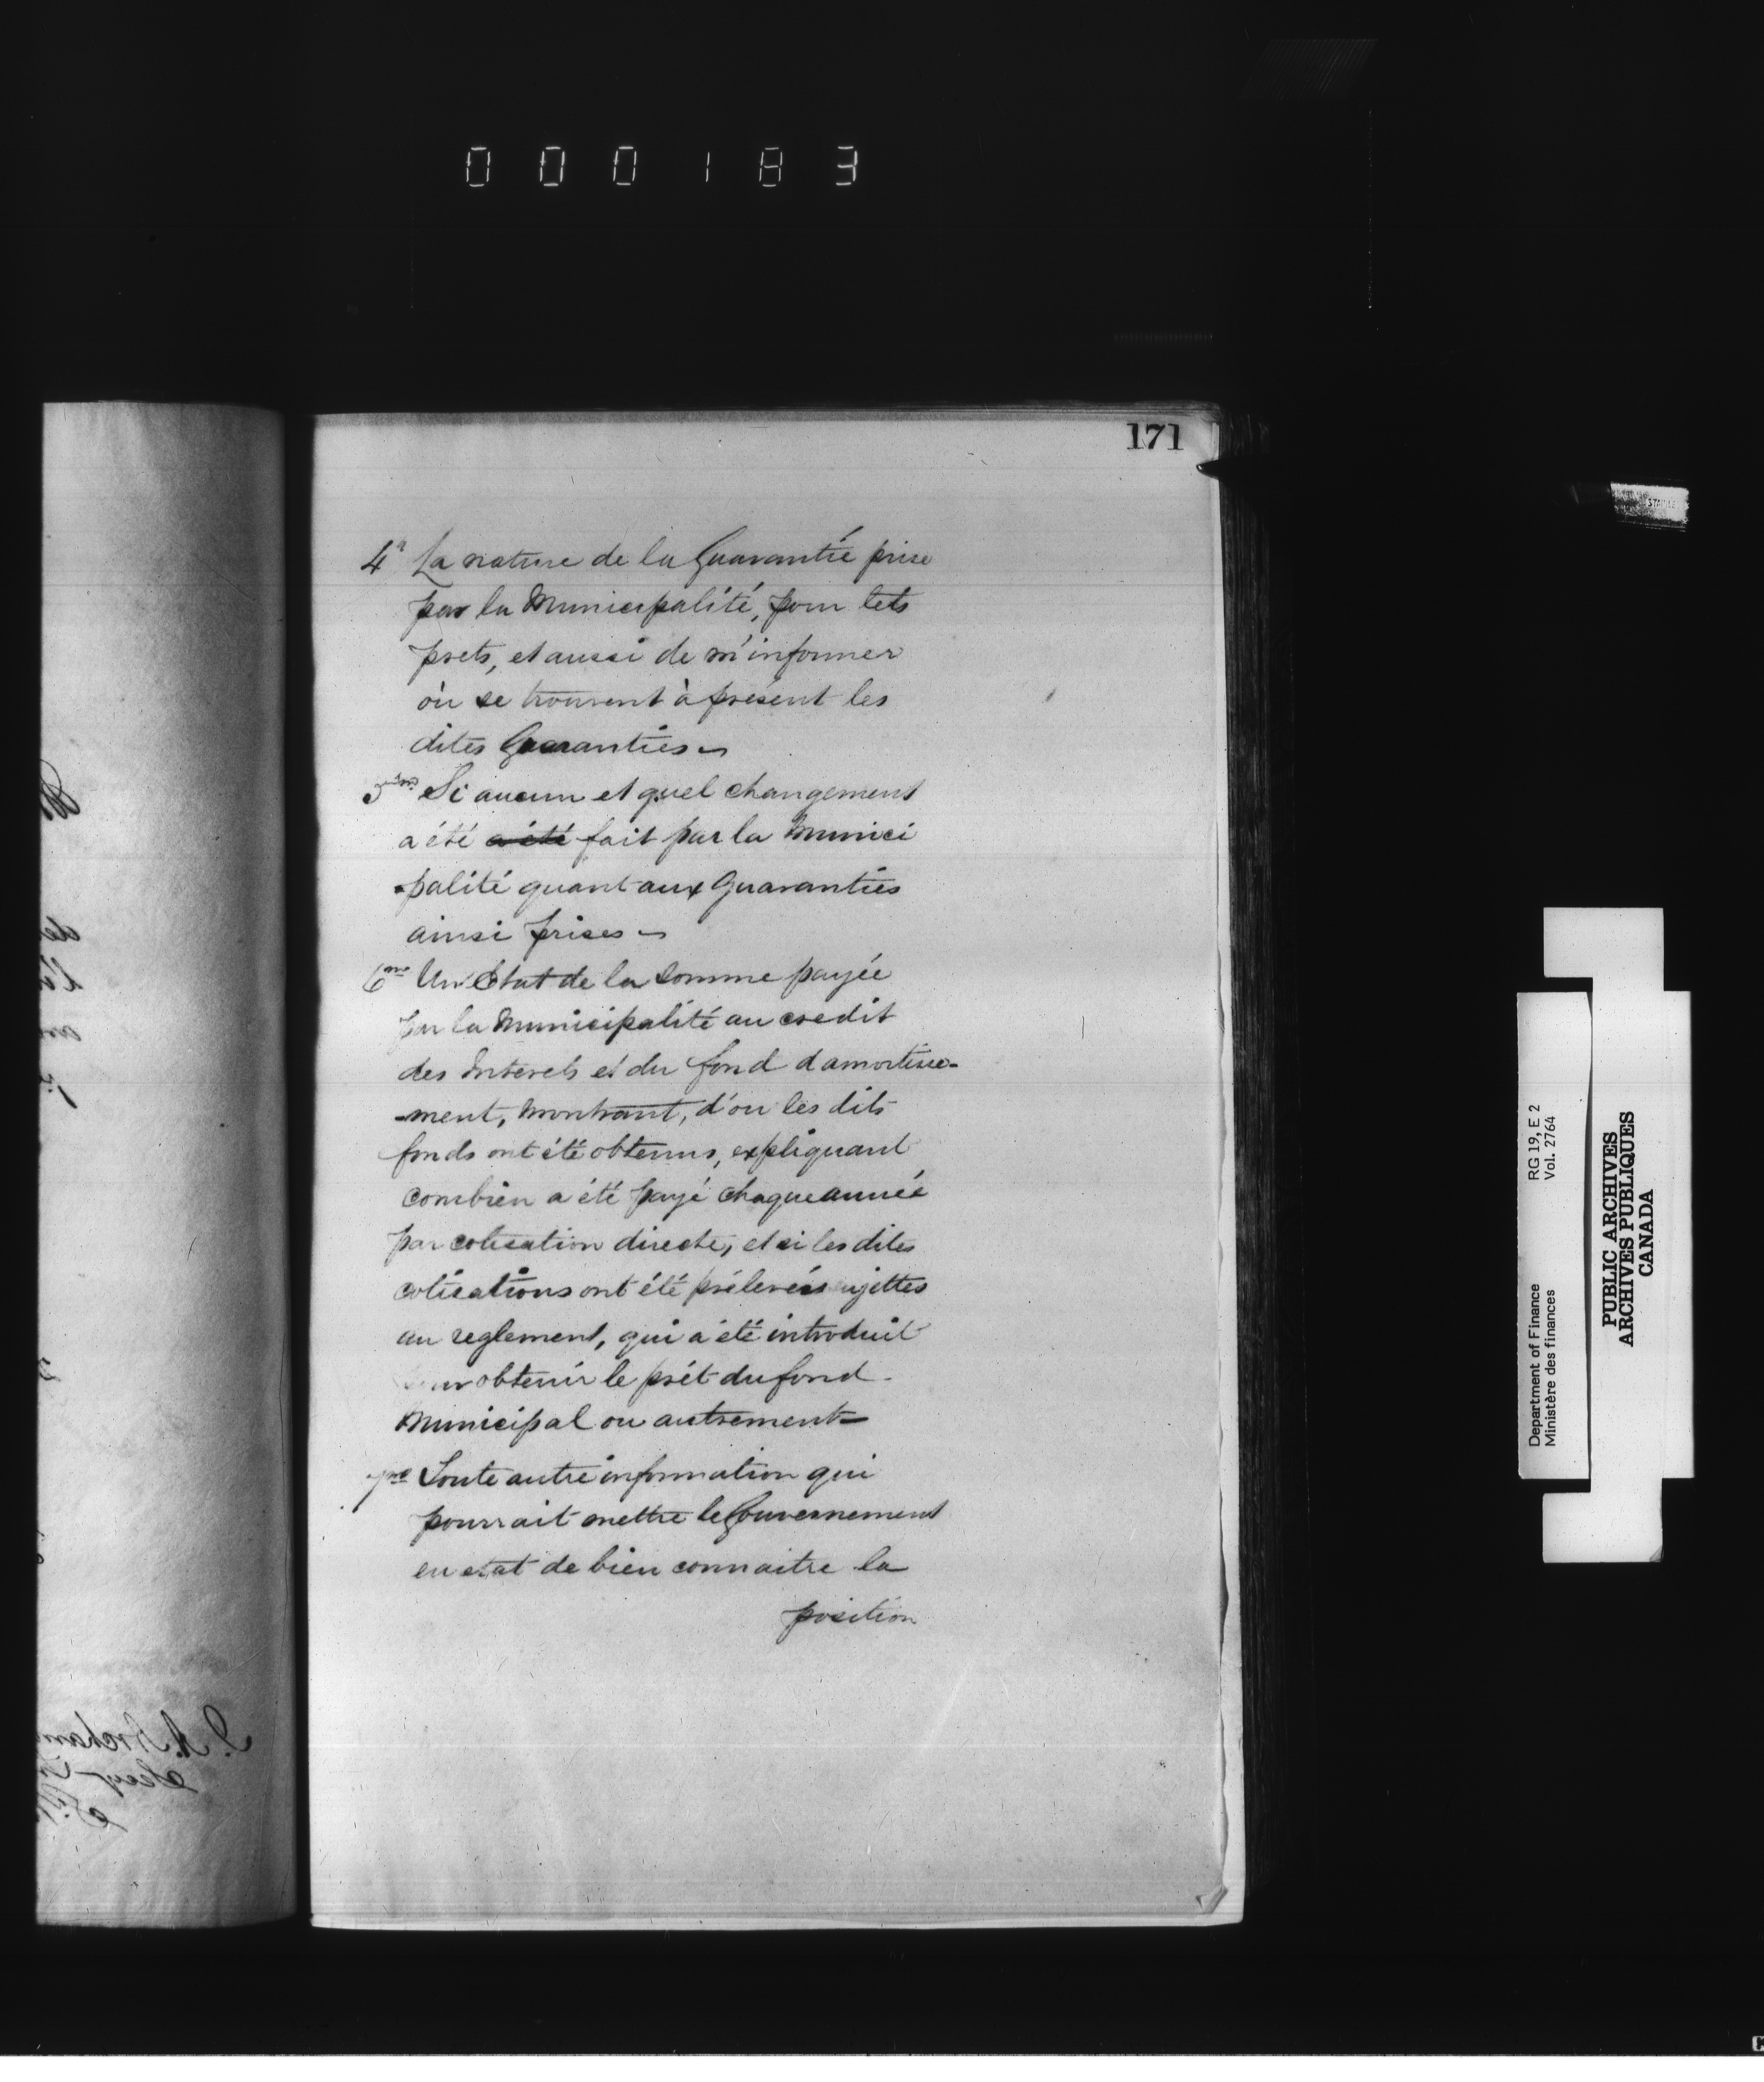 000183
171
4° La nature de la Guarantie prise
par la Municipalité, pour tels
prets, et aussi de m'informer
où se trouvent à présent les
dites Guaranties
5me Si aucun et quel changement
a été a été fait par la Munici
palité quant aux Guaranties
ainsi prises
6me Un Etat de la Somme payée
par la Municipalité au credit
des Interets et du fond d amortisse-
-ment, montrant, d'ou les dits
fonds ont été obtenus, expliquant
combien a été payé chaque année
par cotisation directe, et si les dites
cotisations ont été prélevées sujettes
au reglement, qui a été introduit
pour obtenir le prét du fond
Municipal ou autrement
7me Toute autre information qui
pourrait mettre le Gouvernement
en etat de bien connaitre la
position
Department of Finance RG 19, E 2
Ministère des finances Vol. 2764
PUBLIC ARCHIVES
ARCHIVES PUBLIQUES
CANADA